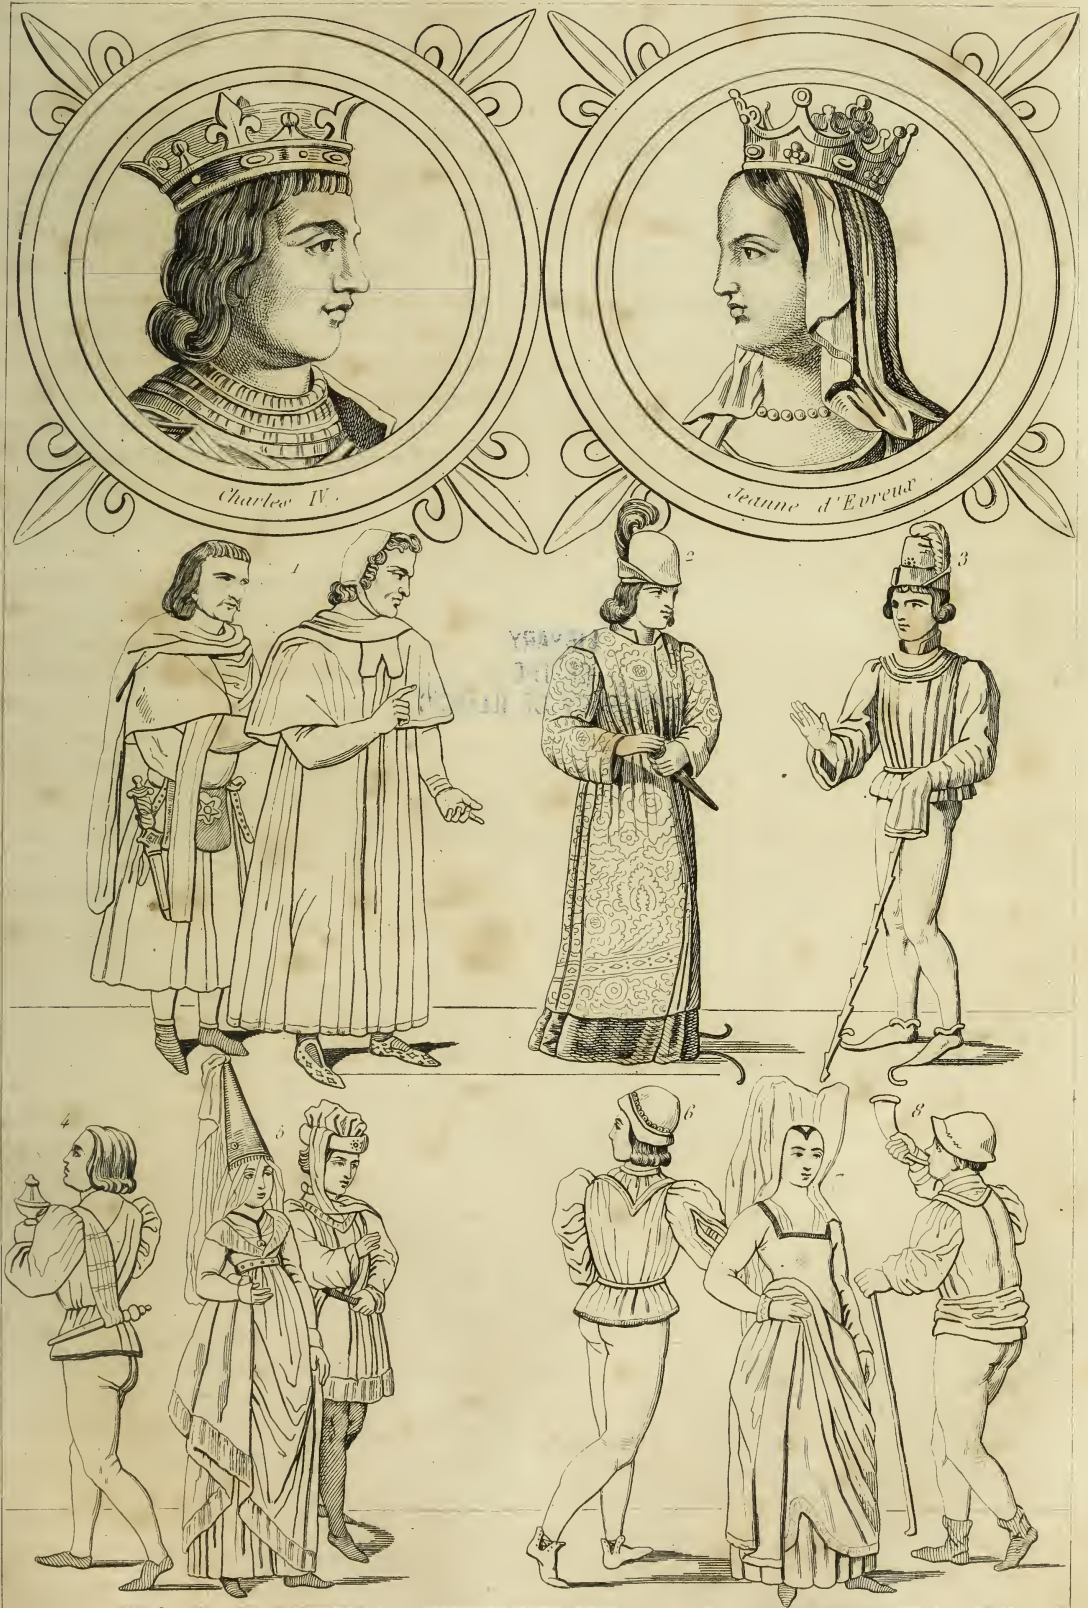 Charles IV.
Jeanne d'Evreux.
1
2
3
4
5
6
7
8